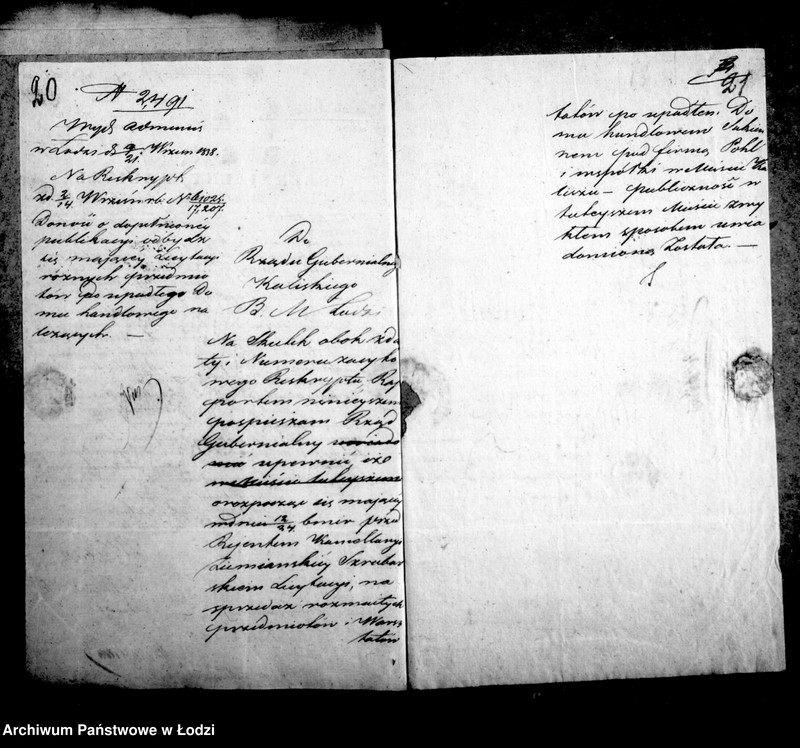 20
N 2491
Wydz Admin
w Łodzi d 9/21 Wrzes 1838.
Na Reskrypt
zd 2/14 Wrzes rb. N
17,207.
Donosi o dopełnionej
publikacyi odbydź
się mającej Licytacyi
różnych przedmio
tów do upadłego Do
mu handlowego na
leżących. —
Do
Rządu Gubernialnego
Kaliskiego
B. M Łodzi
Na Skutek obok zda
ty i Numeru zacyto
wanego Reskryptu Ra
portem niniejszem
pospieszam Rząd
Gubernialny
upewnić, iże
w Mieście tutejszem
o rozpocząć się mającej
w dniu 12/24 b. m. i r. przed
Rejentem Kancellaryi
Ziemiańskiej
Licytacyi, na
sprzedaż rozmaitych
przedmiotów i Warsz
tatów
21
tatów po upadłem Do
mu handlowem
nem pod firmą Pohl
i wspólki w Mieście Ka
liszu — publiczność w
tutejszem Mieście zwy
kłem sposobem uwia
domioną została. —
Archiwum Państwowe w Łodzi